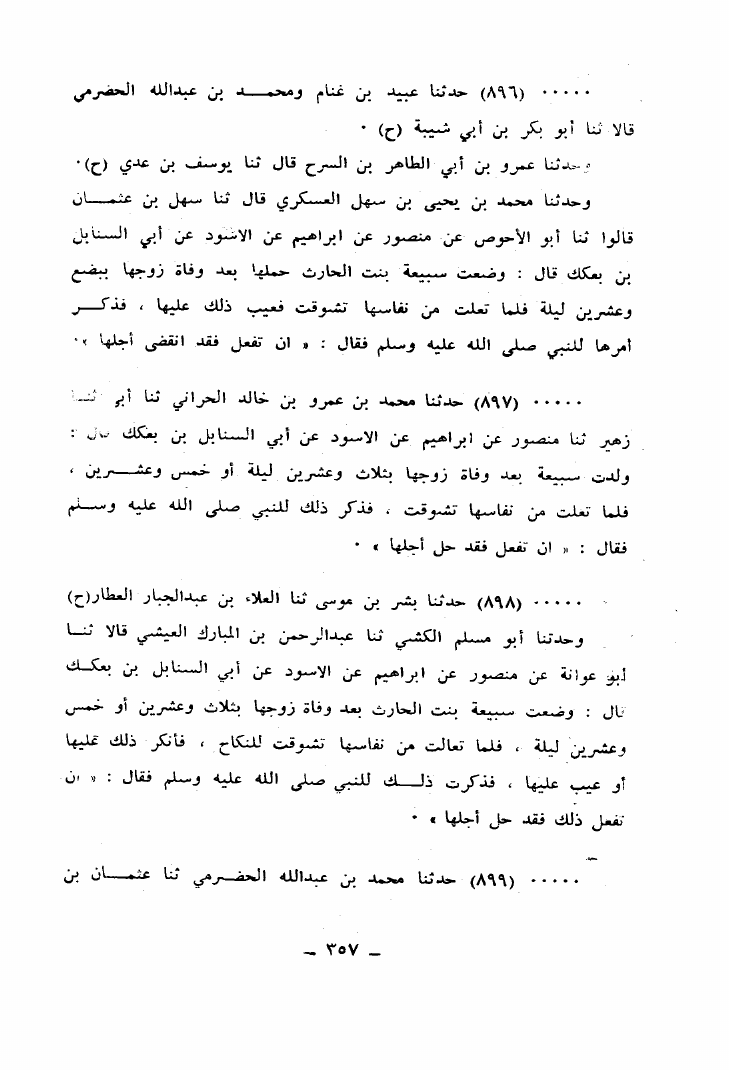 ..... (٨٩٦) حدثنا عبيد بن غنام ومحمد بن عبدالله الحضرمي
قالا ثنا أبو بكر بن أبي شيبة (ح) .
وحدثنا عمرو بن أبي الطاهر بن السرح قال ثنا يوسف بن عدي (ح).
وحدثنا محمد بن يحيى بن سهل العسكري قال ثنا سهل بن عثمان
قالوا ثنا أبو الأحوص عن منصور عن ابراهيم عن الاسود عن أبي السنابل
بن بعكك قال : وضعت سبيعة بنت الحارث حملها بعد وفاة زوجها ببضع
وعشرين ليلة فلما تعلت من نفاسها تشوقت فعيب ذلك عليها ، فذكر
أمرها للنبي صلى الله عليه وسلم فقال : « ان تفعل فقد انقضى أجلها » .
..... (٨٩٧) حدثنا محمد بن عمرو بن خالد الحراني ثنا أبي ثنا
زهير ثنا منصور عن ابراهيم عن الاسود عن أبي السنابل بن بعكك قال :
ولدت سبيعة بعد وفاة زوجها بثلاث وعشرين ليلة أو خمس وعشرين ،
فلما تعلت من نفاسها تشوقت ، فذكر ذلك للنبي صلى الله عليه وسلم
فقال : « ان تفعل فقد حل أجلها » .
..... (٨٩٨) حدثنا بشر بن موسى ثنا العلاء بن عبدالجبار العطار(ح)
وحدتنا أبو مسلم الكشي ثنا عبدالرحمن بن المبارك العيشي قالا ثنا
أبو عوانة عن منصور عن ابراهيم عن الاسود عن أبي السنابل بن بعكك
قال : وضعت سبيعة بنت الحارث بعد وفاة زوجها بثلاث وعشرين أو خمس
وعشرين ليلة ، فلما تعالت من نفاسها تشوقت للنكاح ، فأنكر ذلك عليها
أو عيب عليها ، فذكرت ذلك للنبي صلى الله عليه وسلم فقال : « ان
تفعل ذلك فقد حل أجلها » .
..... (٨٩٩) حدثنا محمد بن عبدالله الحضرمي ثنا عثمان بن
– ٣٥٧ –